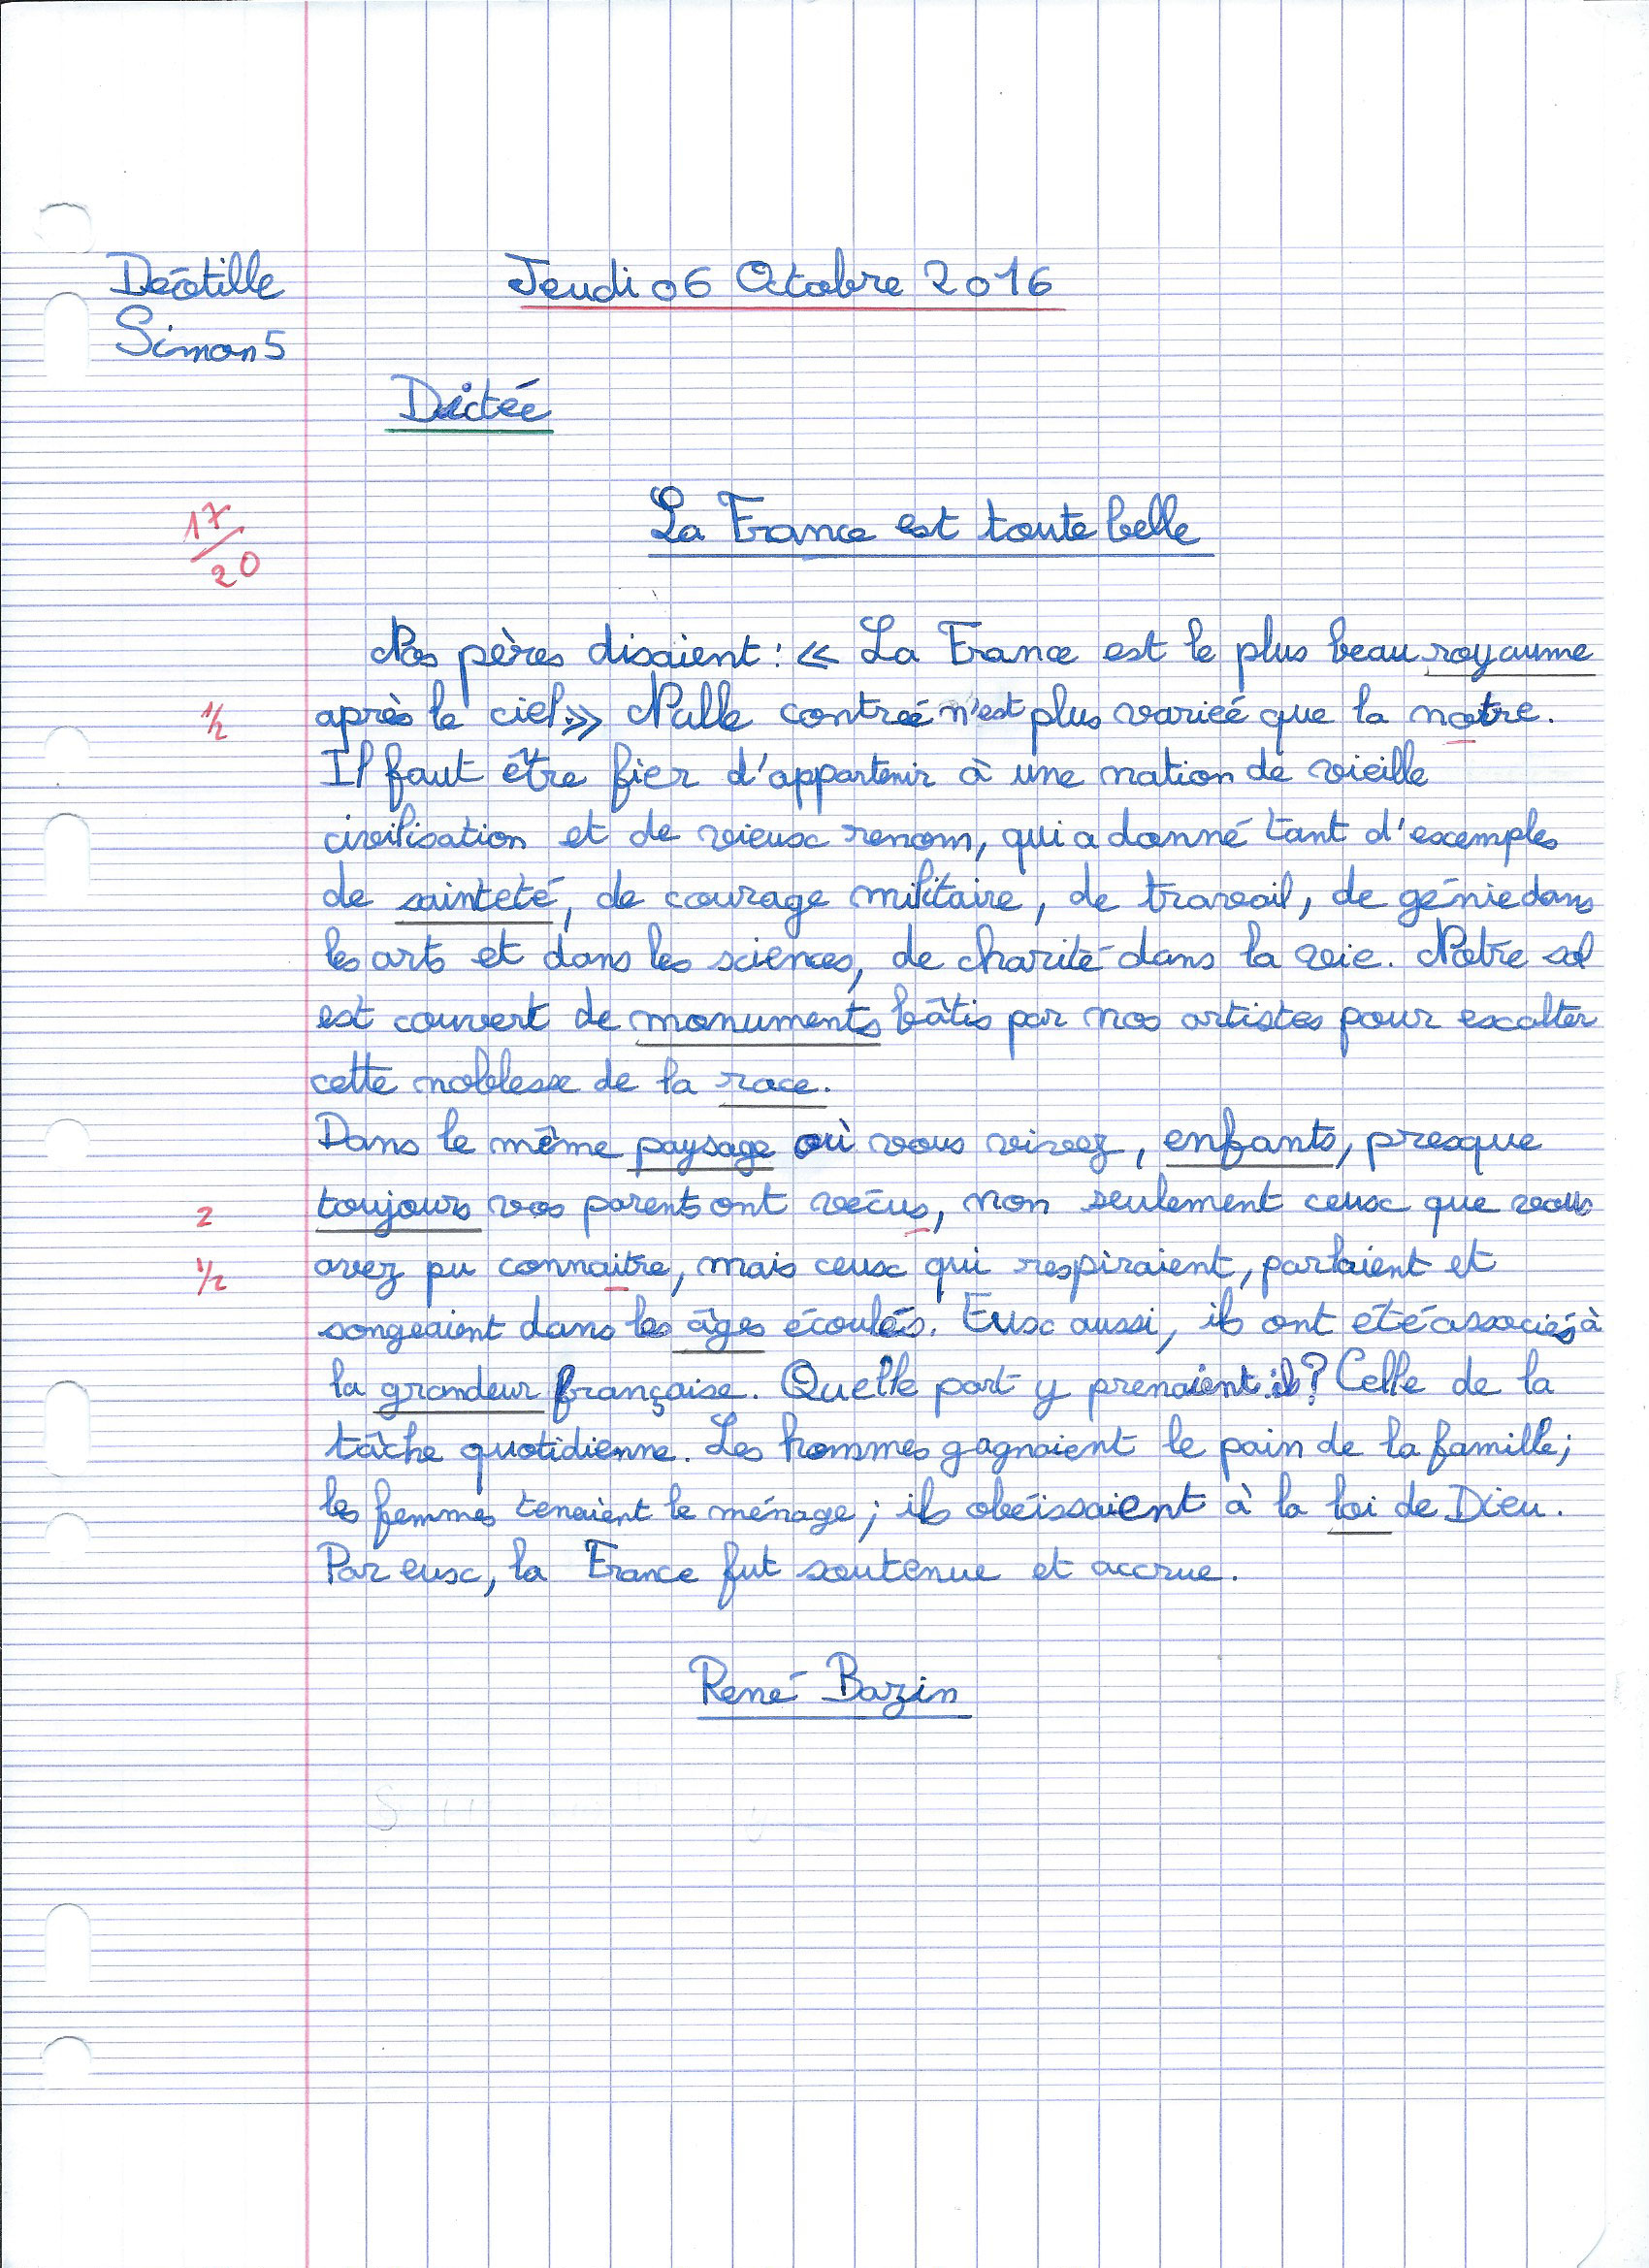 Deotille
Simon 5
Jeudi 06 Octobre 2016
Dictée
17/20
La France est toute belle
Nos pères disaient : « La France est le plus beau royaume
1/2 après le ciel. » Nulle contrée n'est plus variée que la notre.
Il faut être fier d'appartenir à une nation de vieille
civilisation et de vieux renom, qui a donné tant d'exemples
de sainteté, de courage militaire, de travail, de génie dans
les arts et dans les sciences, de charité dans la vie. Notre sol
est couvert de monuments bâtis par nos artistes pour exalter
cette noblesse de la race.
Dans le même paysage où vous vivez, enfants, presque
2 toujours vos parents ont vécus, non seulement ceux que vous
1/2 avez pu connaitre, mais ceux qui respiraient, parlaient et
songeaient dans les âges écoulés. Eux aussi, ils ont été associés à
la grandeur française. Quelle part y prenaient ils ? Celle de la
tâche quotidienne. Les hommes gagnaient le pain de la famille ;
les femmes tenaient le ménage ; ils obéissaient à la loi de Dieu.
Par eux, la France fut soutenue et accrue.
René Bazin